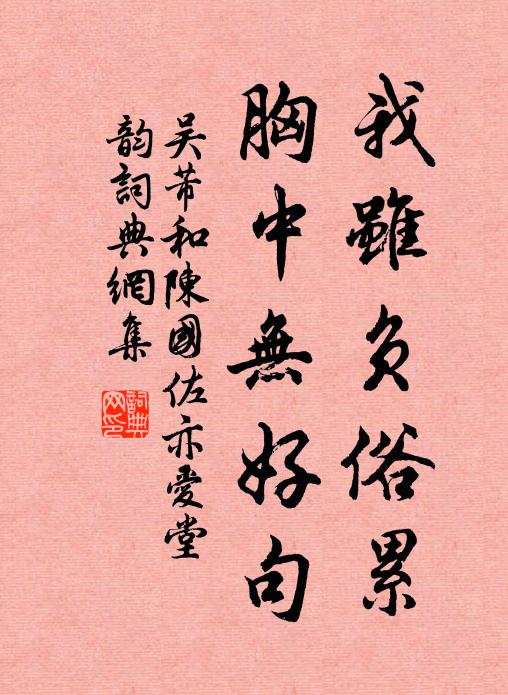 我雖負俗累
胸中無好句
吴芾和陳國佐亦愛堂
韵詞典網集
詞典网印